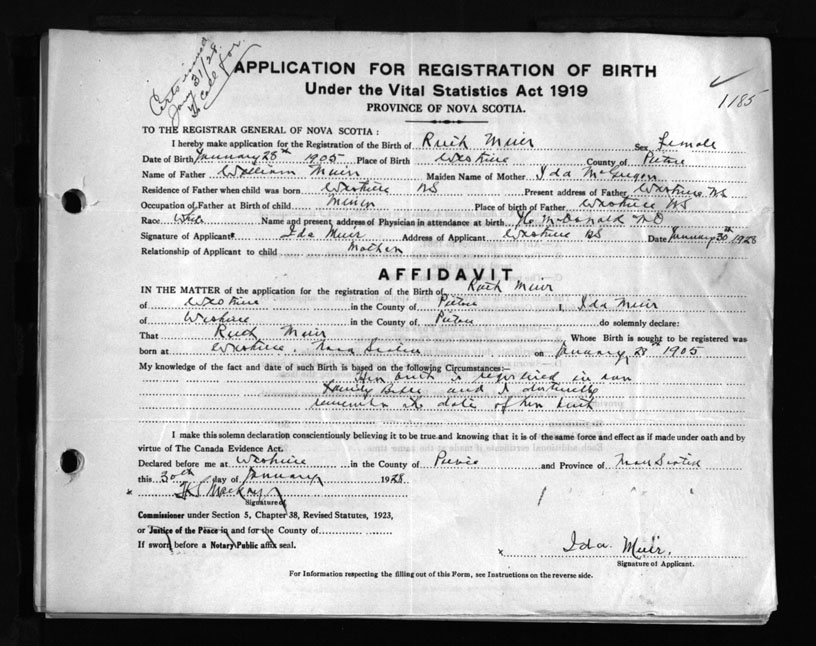 Certs issued
Jany 31/28
To call for
APPLICATION FOR REGISTRATION OF BIRTH
Under the Vital Statistics Act 1919
PROVINCE OF NOVA SCOTIA.
1185
TO THE REGISTRAR GENERAL OF NOVA SCOTIA:
I hereby make application for the Registration of the Birth of Ruth Muir Sex Female
Date of Birth January 28th 1905 Place of Birth Westville County of Pictou
Name of Father William Muir Maiden Name of Mother Ida McGregor
Residence of Father when child was born Westville NS Present address of Father Westville NS
Occupation of Father at Birth of child Miner Place of birth of Father Westville NS
Race White Name and present address of Physician in attendance at birth McDonald MD
Signature of Applicant Ida Muir Address of Applicant Westville NS Date January 30th 1928
Relationship of Applicant to child Mother
AFFIDAVIT
IN THE MATTER of the application for the registration of the Birth of Ruth Muir
of Westville in the County of Pictou I, Ida Muir
of Westville in the County of Pictou do solemnly declare:
That Ruth Muir Whose Birth is sought to be registered was
born at Westville, Nova Scotia on January 28th 1905
My knowledge of the fact and date of such Birth is based on the following Circumstances:-
Her birth is registered in our
Family Bible and I distinctly
remember the date of her birth
I make this solemn declaration conscientiously believing it to be true and knowing that it is of the same force and effect as if made under oath and by
virtue of The Canada Evidence Act.
Declared before me at Westville in the County of Pictou and Province of Nova Scotia
this 30th day of January 1928
Mackay
Signature of
Commissioner under Section 5, Chapter 38, Revised Statutes, 1923,
or Justice of the Peace in and for the County of
If sworn before a Notary Public affix seal.
Ida Muir,
Signature of Applicant.
For Information respecting the filling out of this Form, see Instructions on the reverse side.